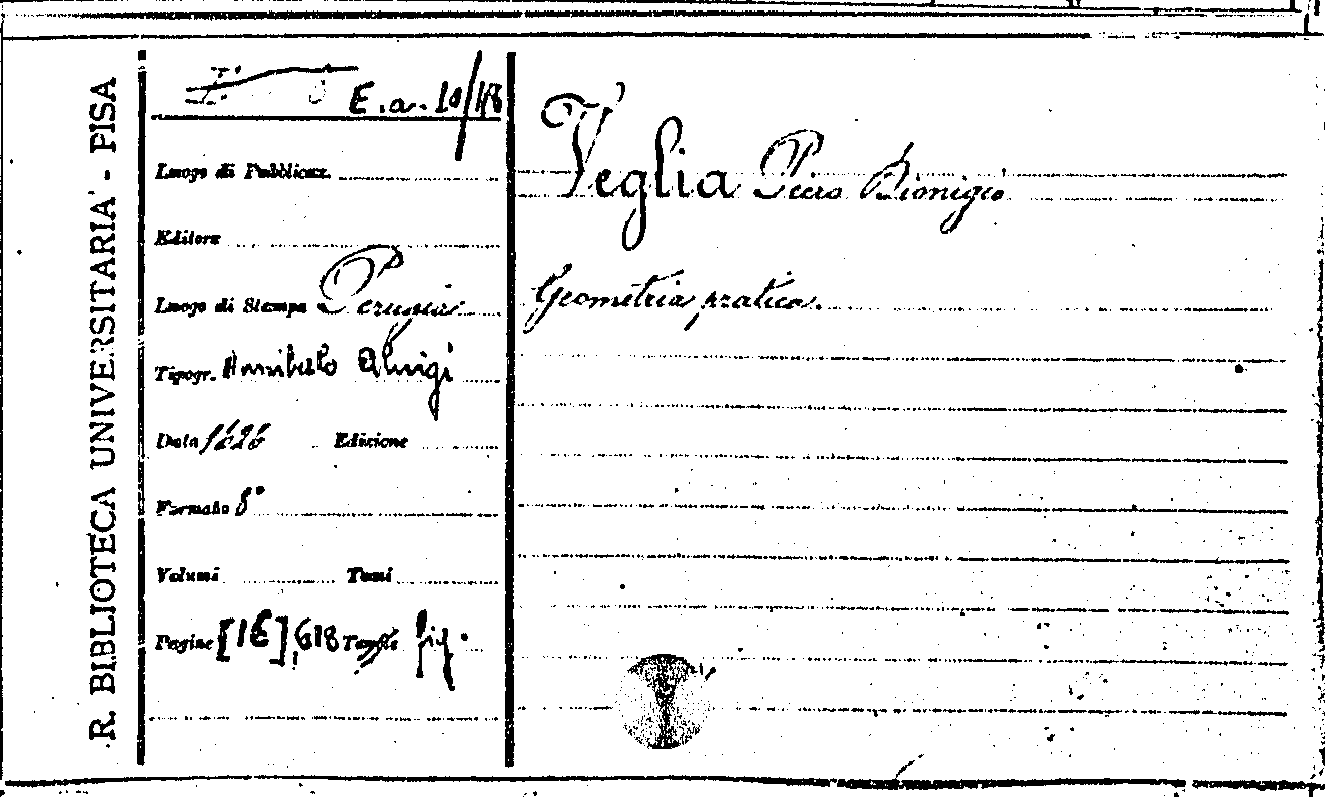 R. BIBLIOTECA UNIVERSITARIA - PISA
E.a. 10/18
Luogo di Pubblicaz.
Editore
Luogo di Stampa Perugia
Tipogr. Annibale Aluigi
Data 1626 Edizione
Formato 8°
Volumi Tomi
Pagine [16], 618 Tavole fig.
Veglia Piero Dionigio
Geometria pratica.